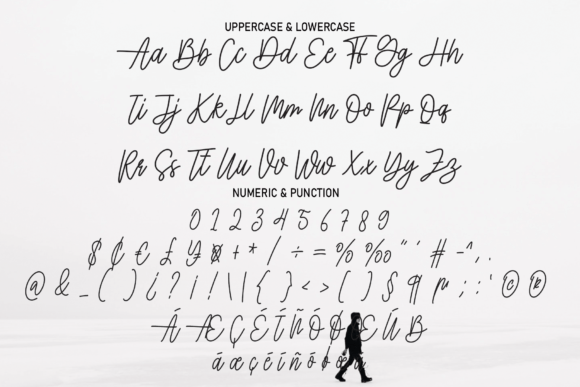 UPPERCASE & LOWERCASE
Aa Bb Cc Dd Ee Ff Gg Hh
Ii Jj Kk Ll Mm Nn Oo Pp Qq
Rr Ss Tt Uu Vv Ww Xx Yy Zz
NUMERIC & PUNCTION
0 1 2 3 4 5 6 7 8 9
$ ₵ € £ ¥ ¤ + * / ÷ = % ‰ " ' # - ^ , .
@ & _ ( ) ¿ ? ¡ ! \ | { } < > [ ] § ¶ µ ; : ' © ®
Á Æ Ç É Í Ñ Ó Ø Œ Ú ß
á æ ç é í ñ ó